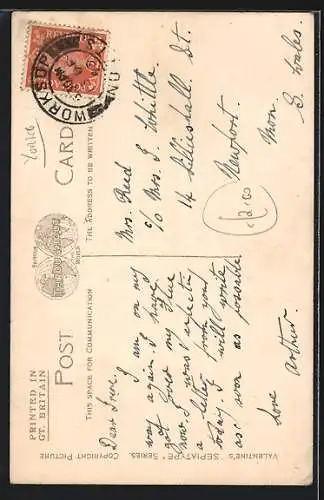 POST CARD
PRINTED IN
GT. BRITAIN
THIS SPACE FOR COMMUNICATION
THE ADDRESS TO BE WRITTEN
VALENTINE'S "SEPIATYPE" SERIES. COPYRIGHT PICTURE
REVENUE
WORKSOP
Yorks
£2.00
Dear
I am on my
way again. I have
got over my flue
now. I was expecti
a letter from you
today. I will write
as soon as possible
Love
Arthur.
Mrs. Reed
c/o Mrs. J. Whittle
14 Lilleshall St.
Newport.
Mon
S. Wales.